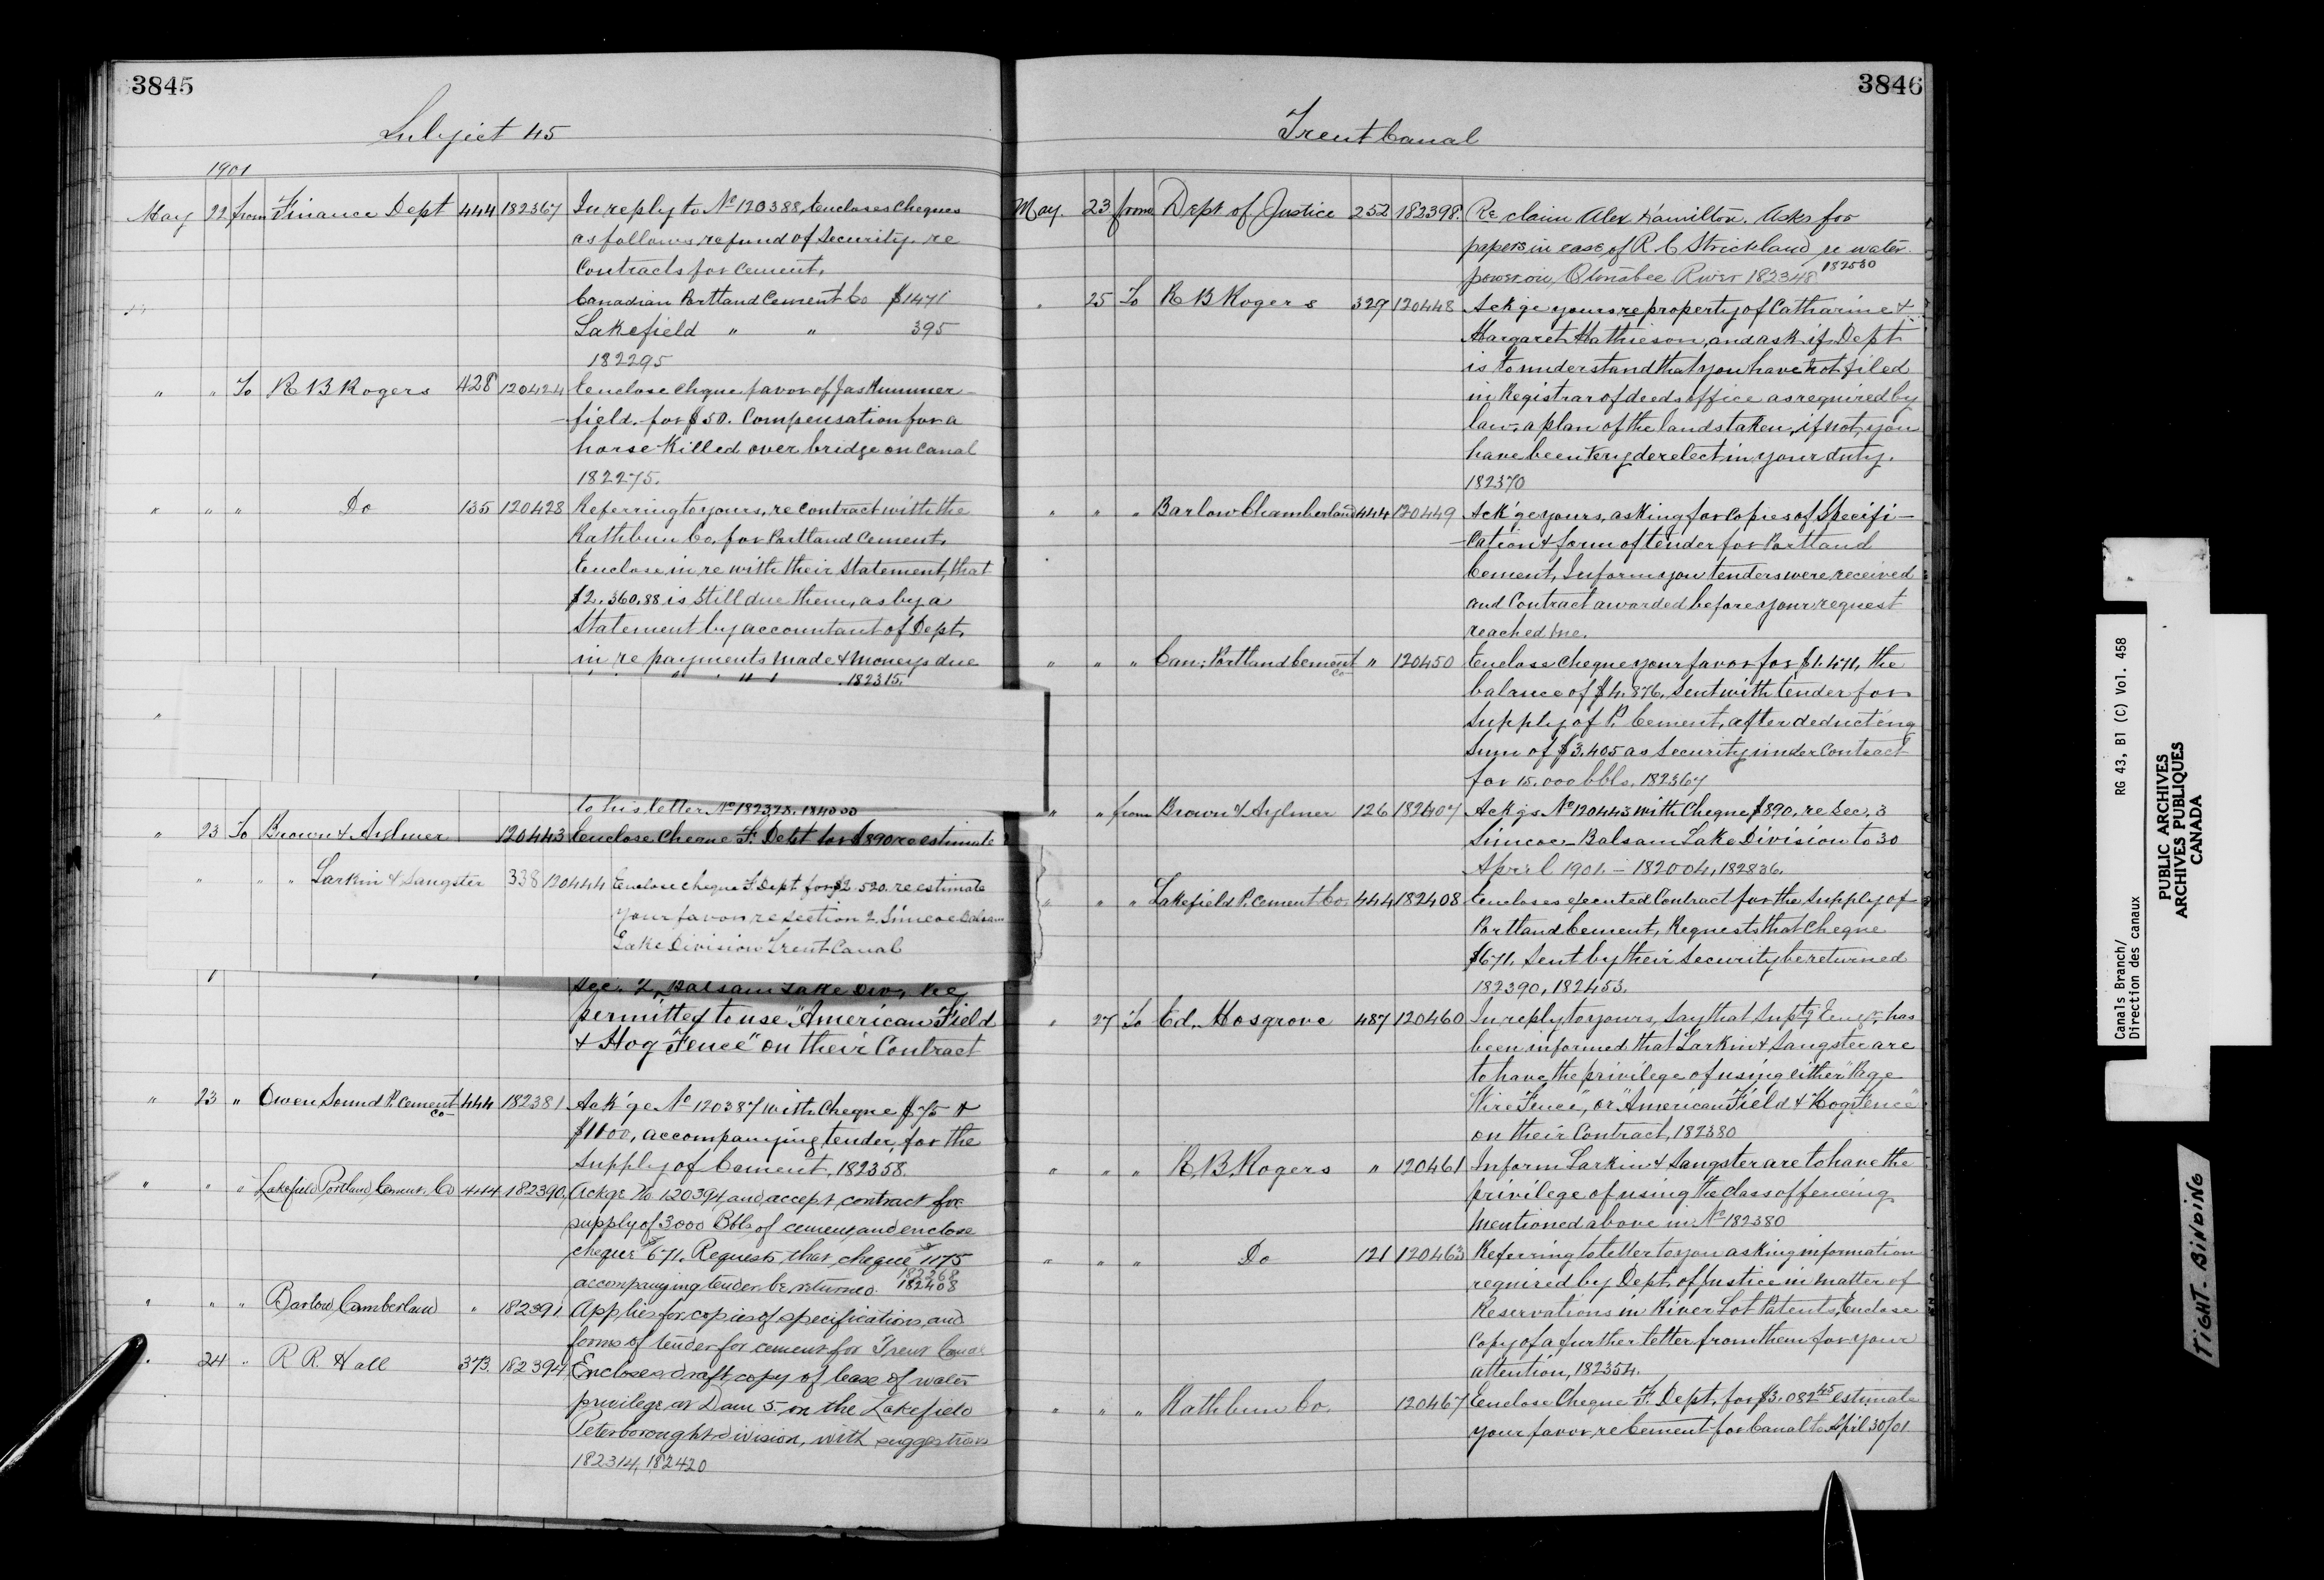 3845
Subject 45
1901
May 22 from Finance Dept 444 182367 In reply to No 120388, Encloses Cheques
as follows refund of Security re
Contracts for Cement.
Canadian Portland Cement Co $1471
Lakefield " " 395
182295
" " To R B Rogers 428 120424 Enclose cheque favor of Jas Kummer-
-field for $50. Compensation for a
horse killed over bridge on Canal
182275.
" " " Do 135 120428 Referring to yours, re Contract with the
Rathbun Co. for Portland Cement.
Enclose in re with their statement, that
$2.360.88 is still due them, as by a
Statement by accountant of Dept.
in re payments made & moneys due
182315.
"
to his letter No 182328. 184030
" 23 To Brown & Aylmer 120443 Enclose Cheque F. Dept for $890 re estimate
" " " Larkin & Sangster 338 120444 Enclose cheque F. Dept for $2.520. re estimate
your favor re Section 2. Simcoe Balsam
Lake Division Trent Canal
Sec. 2, Balsam Lake Div, be
permitted to use "American Field
& Hog Fence" on their Contract
" 23 " Owen Sound P. Cement Co 444 182381 Ack'ge No 120387 with Cheque $75 &
$1100, accompanying tender, for the
Supply of Cement, 182358.
" " " Lakefield Portland Cement Co 444 182390 Ackge No 120394, and accept contract for
supply of 3000 Bbls of cement, and enclose
cheque $671. Requests that cheque $1175
accompanying tender be returned. 182268 182408
" " " Barlow Cumberland " 182391 Applies for copies of specifications, and
forms of tender for cement for Trent Canal
" 24 " R R. Hall 373. 182394 Encloses draft copy of lease of water
privilege at Dam 5 on the Lakefield
Peterborough division, with suggestions
182314, 182420
3846
Trent Canal
May 23 from Dept of Justice 252 182398. Re claim Alex Hamilton. Asks for
papers in case of R. C Strickland re water
power on, Otonabee River 182348 182530
" 25 To R B Rogers 329 120448 Ackge yours re property of Catharine &
Margaret Mathieson, and ask if Dept
is to understand that you have not filed
in Registrar of deeds office as required by
law, a plan of the lands taken, if not, you
have been very derelect in your duty.
182370
" " " Barlow Chamberland 444 120449 Ack'ge yours, asking for Copies of Specifi-
-cation & form of tender for Portland
Cement, Inform you tenders were received
and Contract awarded before your request
reached me.
" " " Can: Portland Cement Co " 120450 Enclose cheque your favor for $1.471, the
balance of $4.876, sent with tender for
Supply of P. Cement, after deducting
Sum of $3.405 as Security under Contract
for 15.000 bbls. 182367
" " from Brown & Aylmer 126 182407 Ackgs No 120443 with Cheque $890. re Sec. 3
Simcoe-Balsam Lake Division to 30
April 1901. - 182004, 182836.
" " " Lakefield P. Cement Co. 444 182408 Encloses executed Contract for the Supply of
Portland Cement, Requests that Cheque
$671. Sent by their Security be returned
182390, 182453.
" 27 To Ed. Hosgrove 487 120460 In reply to yours, say that Suptg Engr. has
been informed that Larkin & Sangster are
to have the privilege of using either "Page
Wire Fence", or "American Field & Hog Fence"
on their Contract, 182380
" " " R. B. Rogers " 120461 Inform Larkin & Sangster are to have the
privilege of using the class of fencing
mentioned above in No 182380
" " " Do 121 120463 Referring to letter to you asking information
required by Dept. of Justice in matter of
Reservations in River Lot Patents, Enclose
Copy of a further letter from them for your
attention, 182354.
" " " Rathbun Co. 120467 Enclose Cheque F. Dept. for $3.082 45 estimate
your favor, re Cement for Canal to April 30/01
Canals Branch/ RG 43, B1 (C) Vol. 458
Direction des canaux
PUBLIC ARCHIVES
ARCHIVES PUBLIQUES
CANADA
TIGHT BINDING